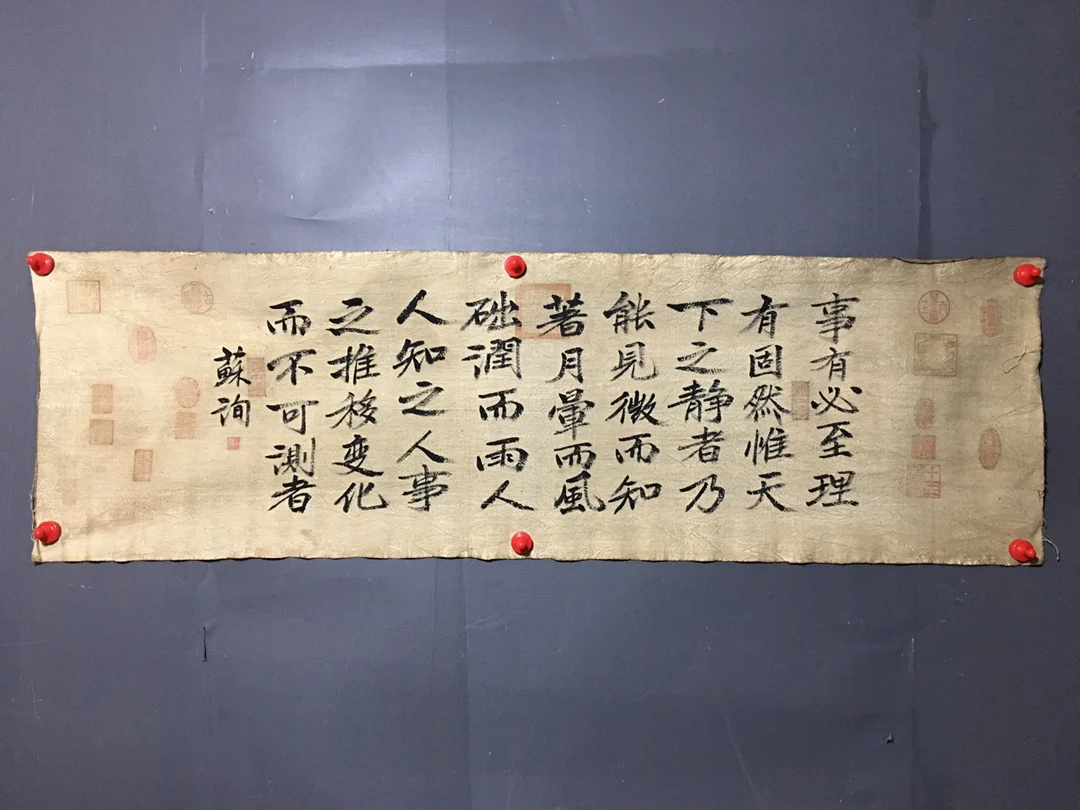 事有必至理
有固然惟天
下之静者乃
能見微而知
著月暈而風
础潤而雨人
人知之人事
之推移变化
而不可測者
蘇詢